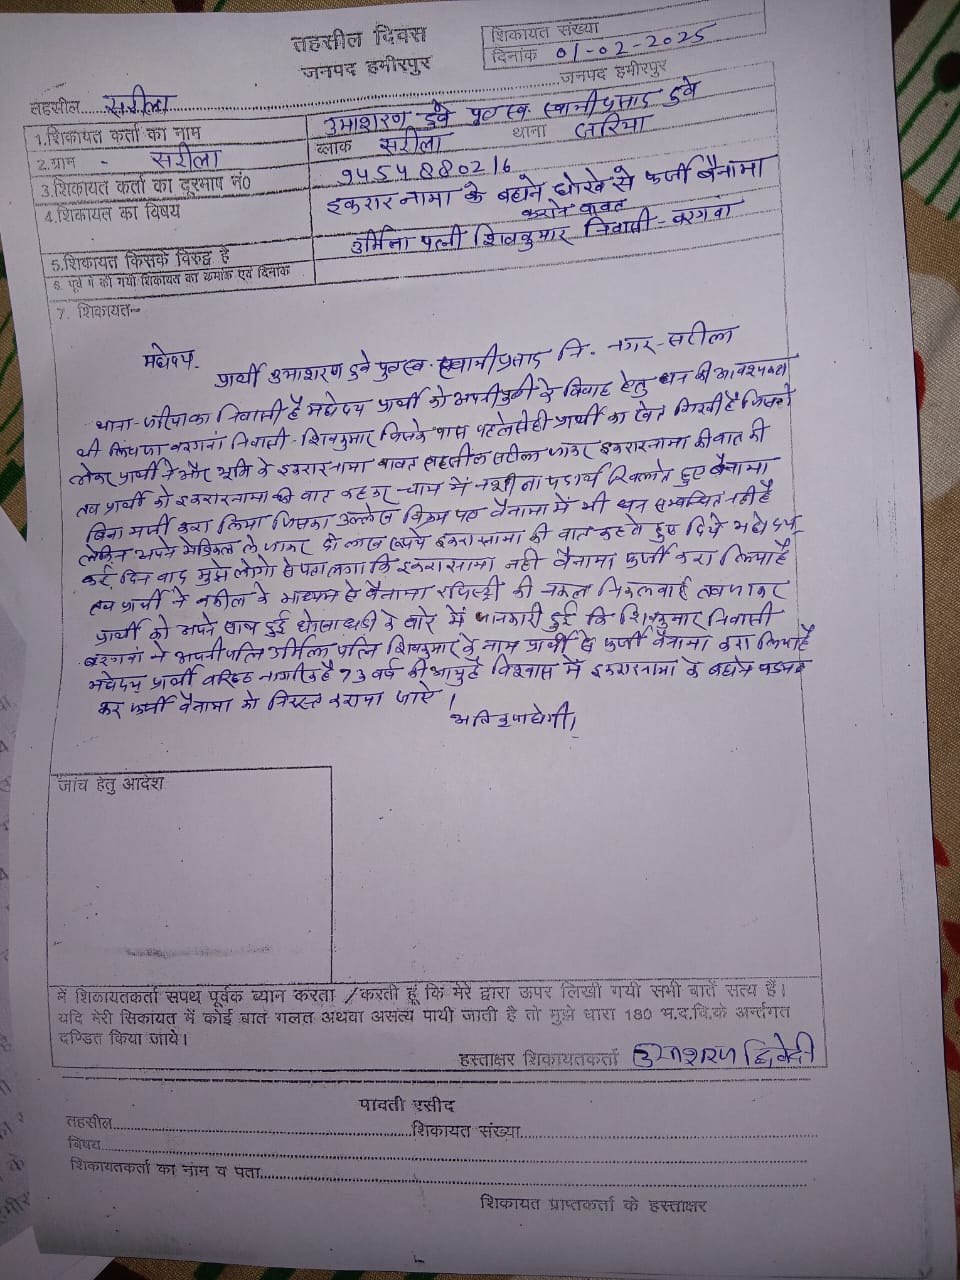 तहसील दिवस
जनपद हमीरपुर
शिकायत संख्या
दिनांक 01-02-2025
जनपद हमीरपुर
तहसील सरीला
1.शिकायत कर्ता का नाम उमाशरण दुवे पुत्र स्व. स्वामी प्रसाद दुवे
2.ग्राम - सरीला ब्लाक सरीला थाना जरिया
3.शिकायत कर्ता का दूरभाष नं0 9454880216
4.शिकायत का विषय इकरारनामा के बहाने धोखे से फर्जी बैनामा
कराने बावत
5.शिकायत किसके विरुद्ध है उर्मिला पत्नी शिवकुमार निवासी - वरगवा
6. पूर्व में की गयी शिकायत का कमांक एवं दिनांक
7. शिकायत-
महोदय,
प्रार्थी उमाशरण दुवे पुत्र स्व. स्वामी प्रसाद नि. नगर-सरीला
थाना-जरिया का निवासी है महोदय प्रार्थी को अपनी पुत्री के विवाह हेतु धन की आवश्यकता
थी निवासी - शिवकुमार जिसके पास पहले से ही प्रार्थी का खेत गिरवी है जिसको
लेकर प्रार्थी ने और भूमि के इकरारनामा बावत तहसील सरीला जाकर इकरारनामा की बात की
तब प्रार्थी को इकरारनामा की बात कहकर चाय में नशीला पदार्थ हुए बैनामा
बिना मर्जी करा लिया जिसका उल्लेख विक्रय पत्र बैनामा में भी धन सम्बन्धित नहीं है
लेकिन अपने मेडिकल ले जाकर दो लाख रूपये इकरारनामा की बात कहते हुए दिये महोदय
कई दिन बाद मुझे लोगो से पता लगा कि इकरारनामा नही बैनामा फर्जी करा लिया है
तब प्रार्थी ने वकील के माध्यम से बैनामा रजिस्ट्री की नकल निकलवाई तब जाकर
प्रार्थी को अपने साथ हुई धोखाधडी के बारे में जानकारी हुई कि शिवकुमार निवासी
बरगवां ने अपनी पत्नि उर्मिला पत्नि शिवकुमार के नाम प्रार्थी से फर्जी बैनामा करा लिया है
महोदय प्रार्थी वरिष्ठ नागरिक है 73 वर्ष की आयु है विश्वास में इकरारनामा के बहाने
कर फर्जी बैनामा को निरस्त कराया जाऐ।
अति कृपा होगी।
जांच हेतु आदेश
में शिकायतकर्ता सपथ पूर्वक ब्यान करता /करती हूं कि मेरे द्वारा ऊपर लिखी गयी सभी बातें सत्य हैं।
यदि मेरी सिकायत में कोई बात गलत अथवा असत्य पायी जाती है तो मुझे धारा 180 भ.द.वि.के अर्न्तगत
दण्डित किया जाये।
हस्ताक्षर शिकायतकर्ता उमाशरण द्विवेदी
पावती रसीद
तहसील शिकायत संख्या
विषय
शिकायतकर्ता का नाम व पता
शिकायत प्राप्तकर्ता के हस्ताक्षर